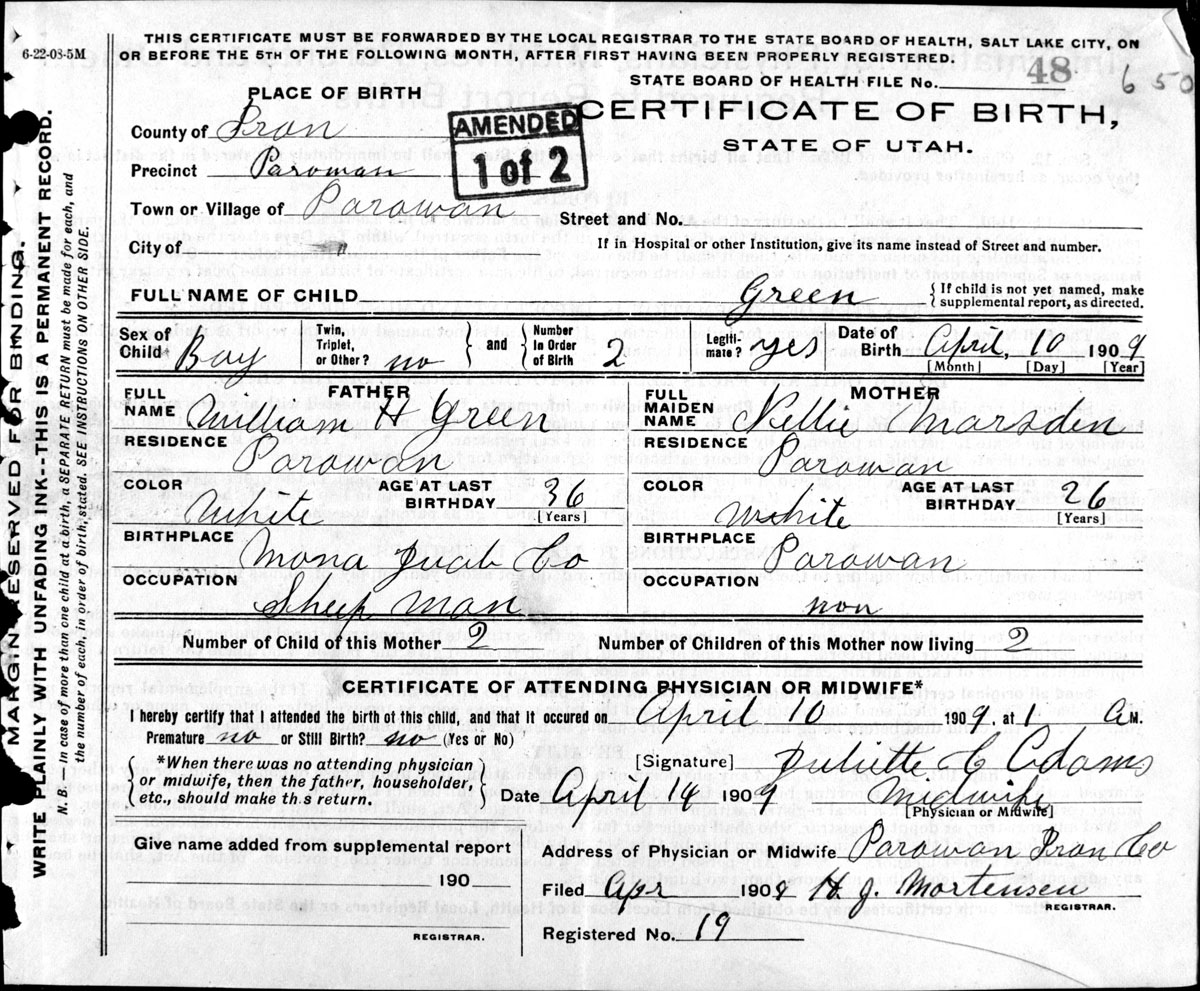 6-22-08-5M
THIS CERTIFICATE MUST BE FORWARDED BY THE LOCAL REGISTRAR TO THE STATE BOARD OF HEALTH, SALT LAKE CITY, ON
OR BEFORE THE 5TH OF THE FOLLOWING MONTH, AFTER FIRST HAVING BEEN PROPERLY REGISTERED.
STATE BOARD OF HEALTH FILE No. 48 650
PLACE OF BIRTH
CERTIFICATE OF BIRTH,
STATE OF UTAH.
AMENDED
1 of 2
County of Iron
Precinct Parowan
Town or Village of Parowan
Street and No.
City of
If in Hospital or other Institution, give its name instead of Street and number.
FULL NAME OF CHILD Green { If child is not yet named, make
supplemental report, as directed.
Sex of Child Boy Twin, Triplet, or Other? no } and { Number In Order of Birth 2 Legiti-mate? yes Date of Birth April, 10 1909
[Month] [Day] [Year]
FATHER
FULL NAME William H Green
RESIDENCE Parowan
COLOR White AGE AT LAST BIRTHDAY 36
[Years]
BIRTHPLACE Mona Juab Co
OCCUPATION Sheep Man
MOTHER
FULL MAIDEN NAME Nellie Marsden
RESIDENCE Parowan
COLOR White AGE AT LAST BIRTHDAY 26
[Years]
BIRTHPLACE Parowan
OCCUPATION non
Number of Child of this Mother 2 Number of Children of this Mother now living 2
CERTIFICATE OF ATTENDING PHYSICIAN OR MIDWIFE*
I hereby certify that I attended the birth of this child, and that it occured on April 10 1909, at 1 A M.
Premature no or Still Birth? no (Yes or No)
{ *When there was no attending physician
or midwife, then the father, householder,
etc., should make th.s return. }
[Signature] Juliette C Adams
Date April 14 1909 Midwife
[Physician or Midwife]
Give name added from supplemental report
190
REGISTRAR.
Address of Physician or Midwife Parowan Iron Co
Filed Apr 1909 H. J. Mortensen
REGISTRAR.
Registered No. 19
MARGIN RESERVED FOR BINDING.
WRITE PLAINLY WITH UNFADING INK--THIS IS A PERMANENT RECORD.
N. B.—In case of more than one child at a birth, a SEPARATE RETURN must be made for each, and
the number of each in order of birth, stated. SEE INSTRUCTIONS ON OTHER SIDE.